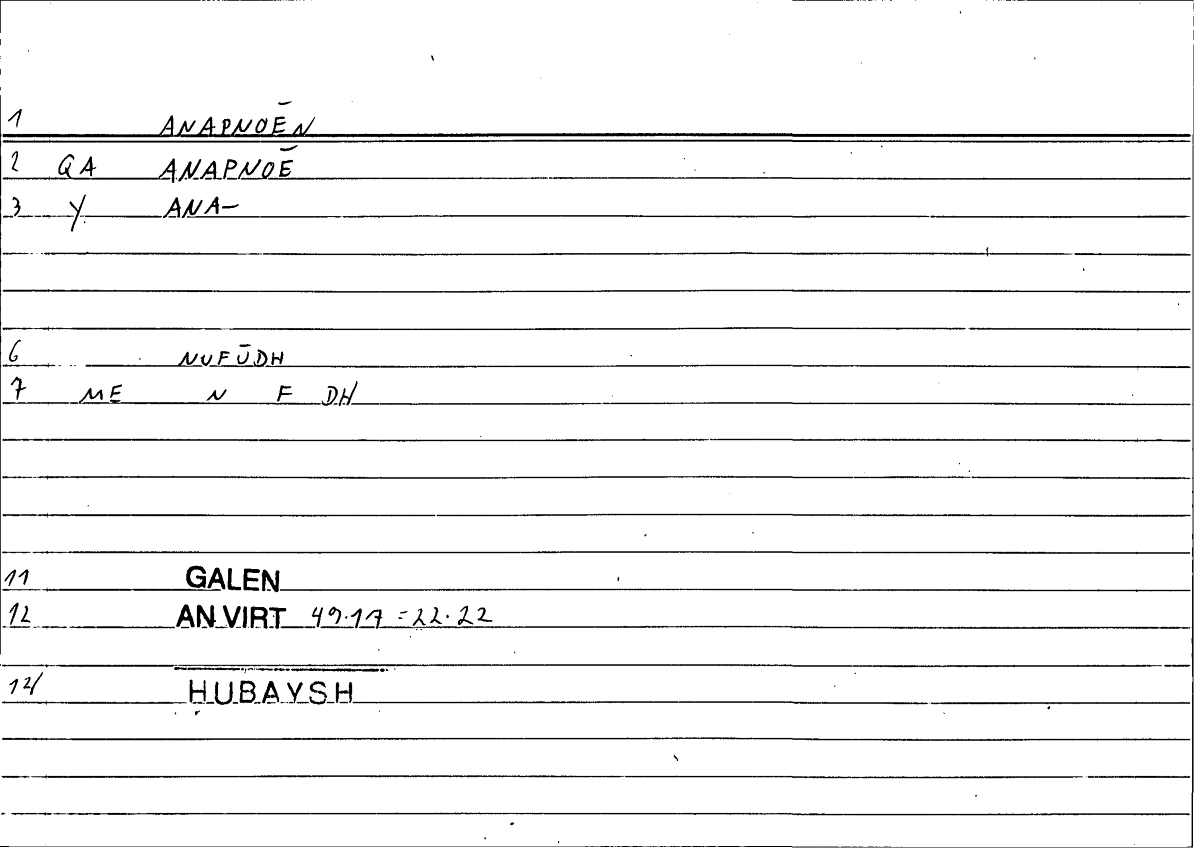 1 ANAPNOĒN
2 QA ANAPNOĒ
3 Y ANA-
6 NUFŪDH
7 ME N F DH
11 GALEN
12 AN VIRT 49.17 = 22.22
14 HUBAYSH